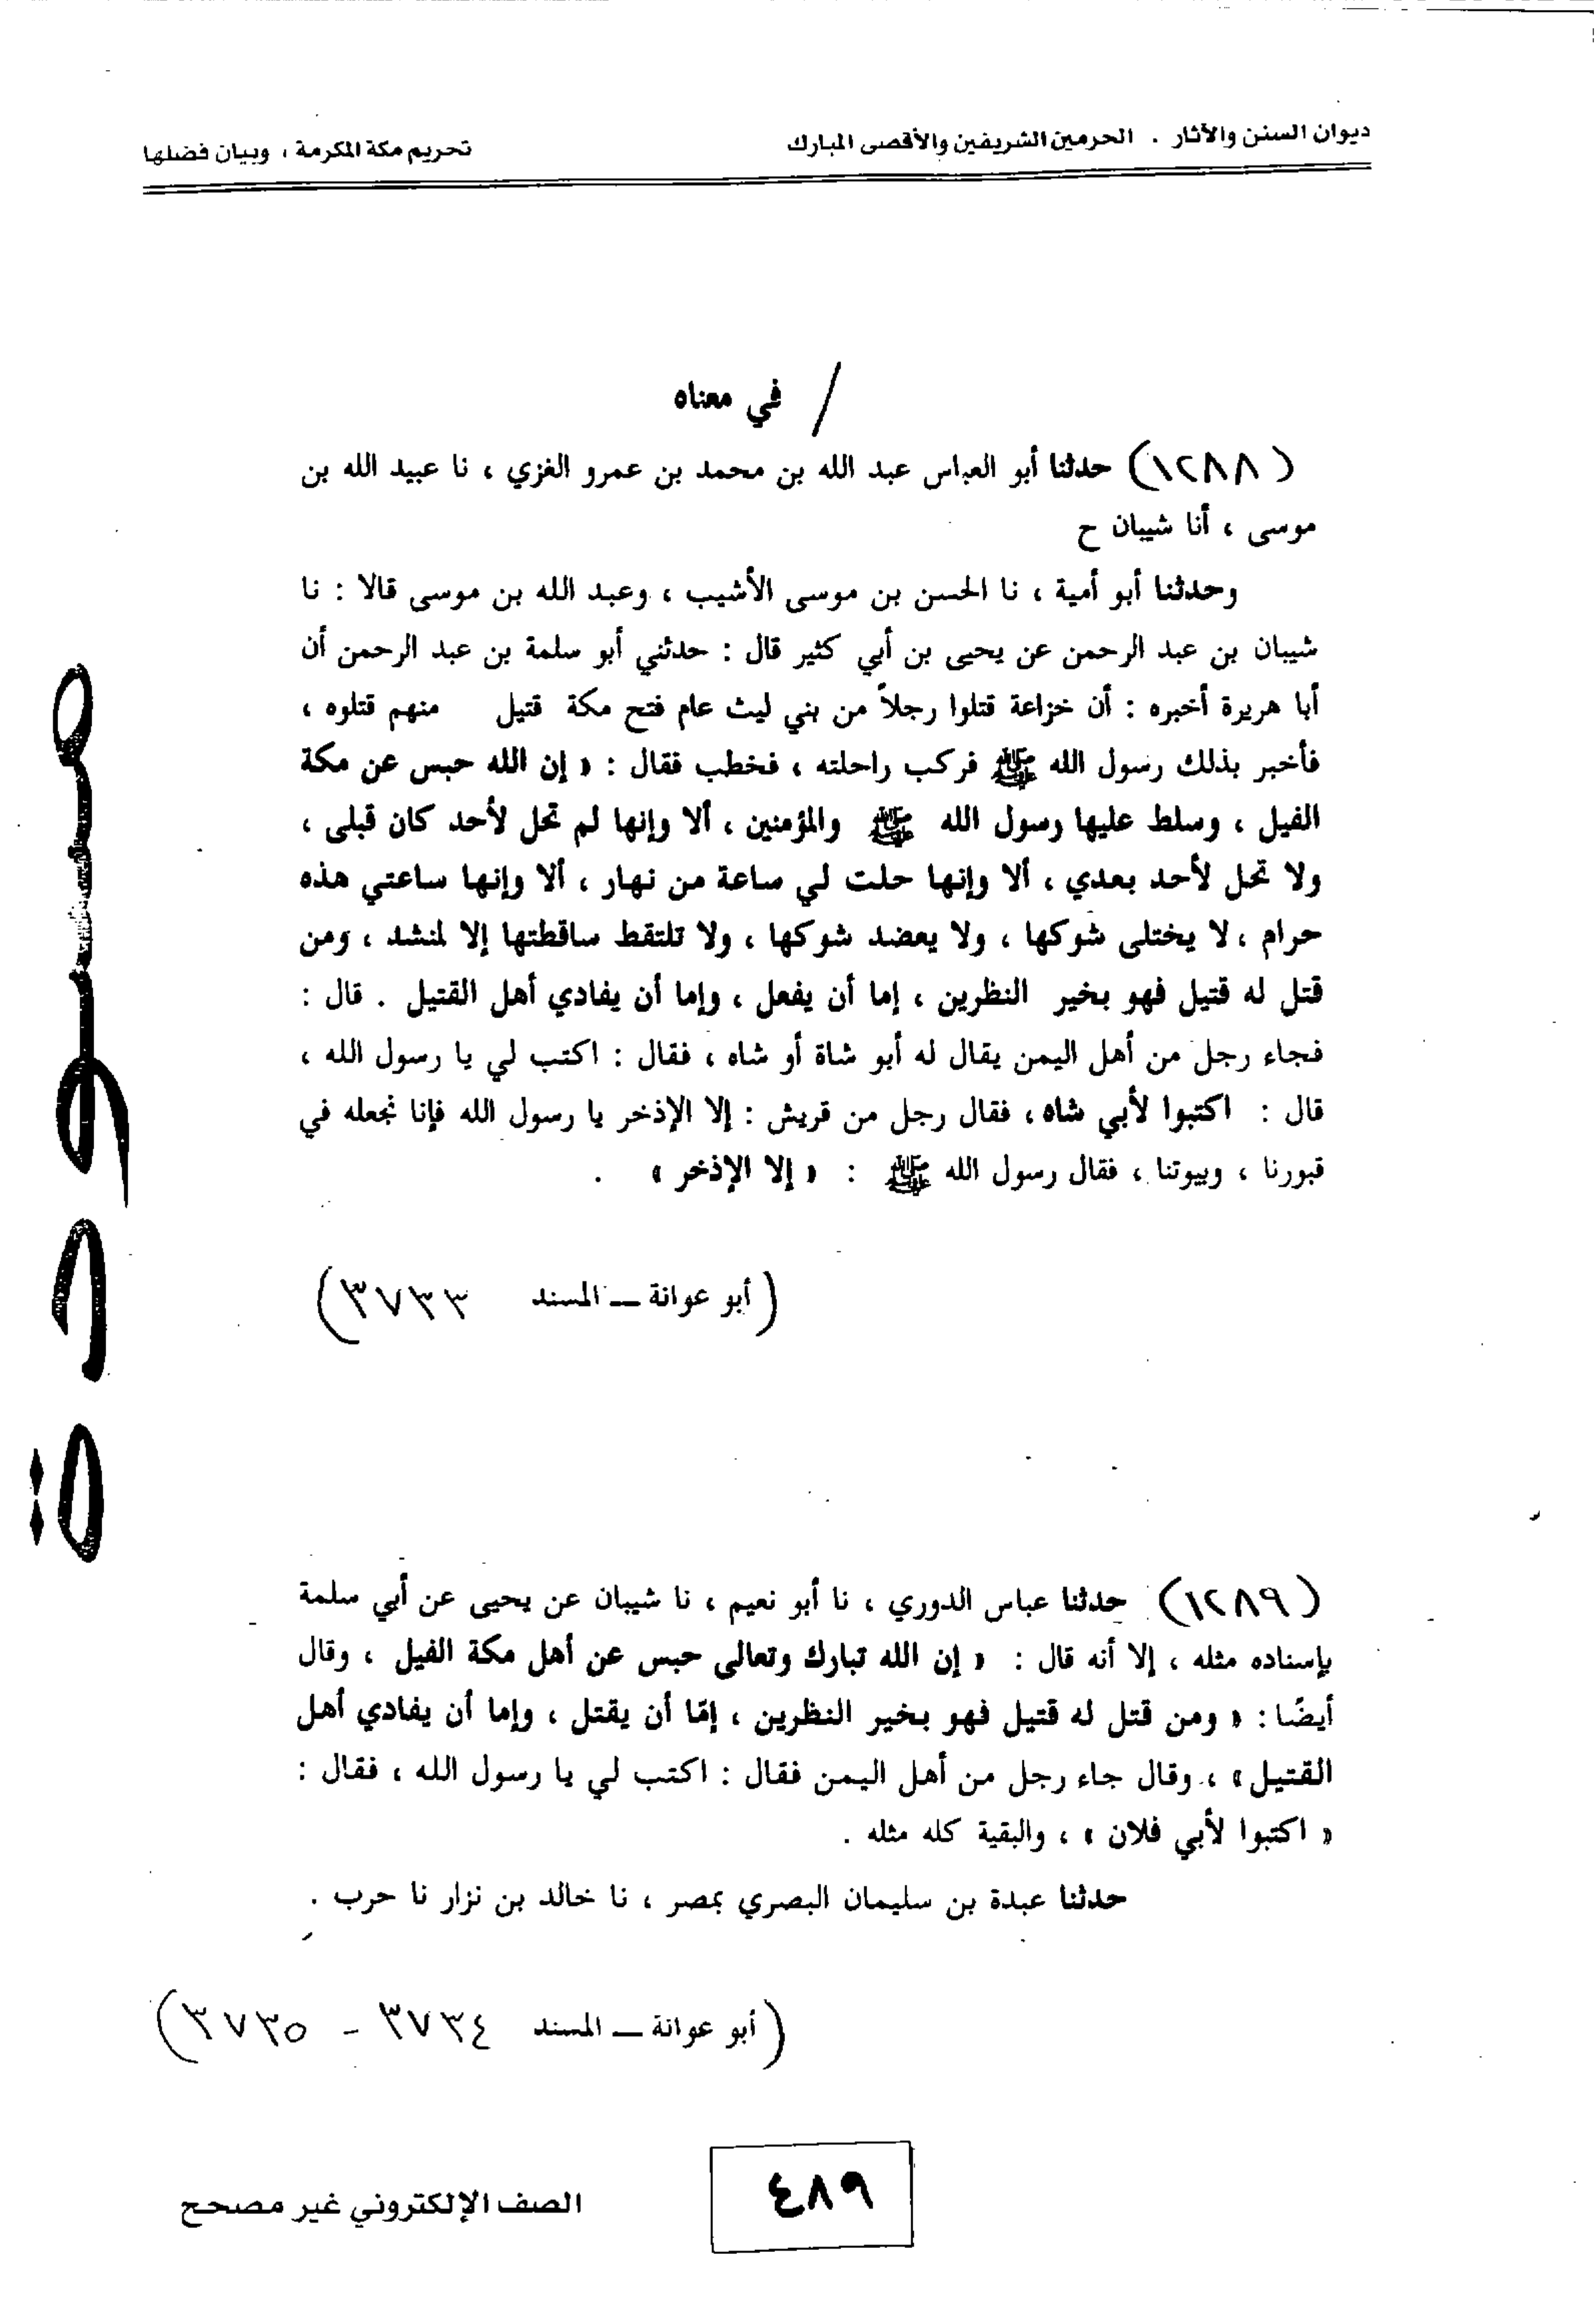 ديوان السنن والآثار . الحرمين الشريفين والأقصى المبارك
تحريم مكة المكرمة ، وبيان فضلها
/ في معناه
(١٢٨٨) حدثنا أبو العباس عبد الله بن محمد بن عمرو الغزي ، نا عبيد الله بن
موسى ، أنا شيبان ح
وحدثنا أبو أمية ، نا الحسن بن موسى الأشيب ، وعبد الله بن موسى قالا : نا
شيبان بن عبد الرحمن عن يحيى بن أبي كثير قال : حدثني أبو سلمة بن عبد الرحمن أن
أبا هريرة أخبره : أن خزاعة قتلوا رجلاً من بني ليث عام فتح مكة قتيل منهم قتلوه ،
فأخبر بذلك رسول الله ﷺ فركب راحلته ، فخطب فقال : « إن الله حبس عن مكة
الفيل ، وسلط عليها رسول الله ﷺ والمؤمنين ، ألا وإنها لم تحل لأحد كان قبلى ،
ولا تحل لأحد بعدي ، ألا وإنها حلت لي ساعة من نهار ، ألا وإنها ساعتي هذه
حرام ، لا يختلى شوكها ، ولا يعضد شوكها ، ولا تلتقط ساقطتها إلا لمنشد ، ومن
قتل له قتيل فهو بخير النظرين ، إما أن يفعل ، وإما أن يفادي أهل القتيل . قال :
فجاء رجل من أهل اليمن يقال له أبو شاة أو شاه ، فقال : اكتب لي يا رسول الله ،
قال : اكتبوا لأبي شاه ، فقال رجل من قريش : إلا الإذخر يا رسول الله فإنا نجعله في
قبورنا ، وبيوتنا ، فقال رسول الله ﷺ : « إلا الإذخر » .
(أبو عوانة – المسند ٣٧٣٣)
(١٢٨٩) حدثنا عباس الدوري ، نا أبو نعيم ، نا شيبان عن يحيى عن أبي سلمة
بإسناده مثله ، إلا أنه قال : « إن الله تبارك وتعالى حبس عن أهل مكة الفيل ، وقال
أيضًا : « ومن قتل له قتيل فهو بخير النظرين ، إمّا أن يقتل ، وإما أن يفادي أهل
القتيل» ، وقال جاء رجل من أهل اليمن فقال : اكتب لي يا رسول الله ، فقال :
« اكتبوا لأبي فلان » ، والبقية كله مثله .
حدثنا عبدة بن سليمان البصري بمصر ، نا خالد بن نزار نا حرب .
(أبو عوانة – المسند ٣٧٣٤ - ٣٧٣٥)
٤٨٩
الصف الإلكتروني غير مصحح
مسودة